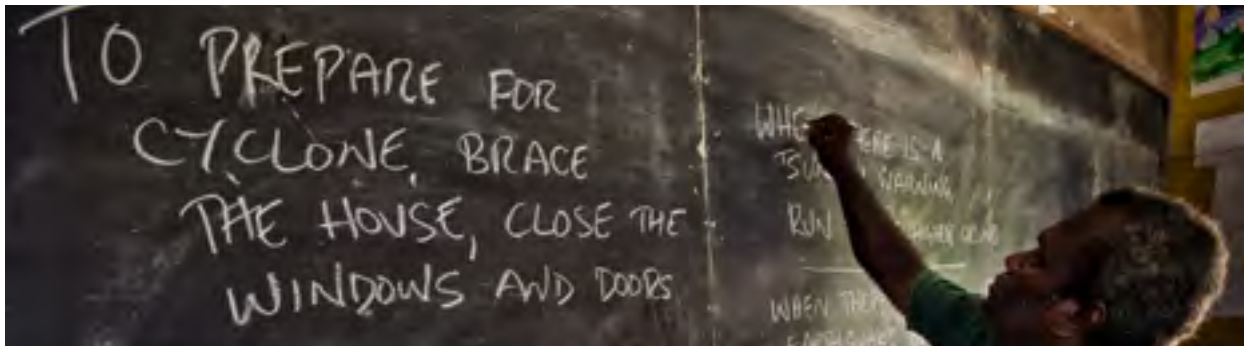 TO PREPARE FOR
CYCLONE, BRACE
THE HOUSE, CLOSE THE
WINDOWS AND DOORS
WHEN THERE IS A
WARNING
RUN
WHEN